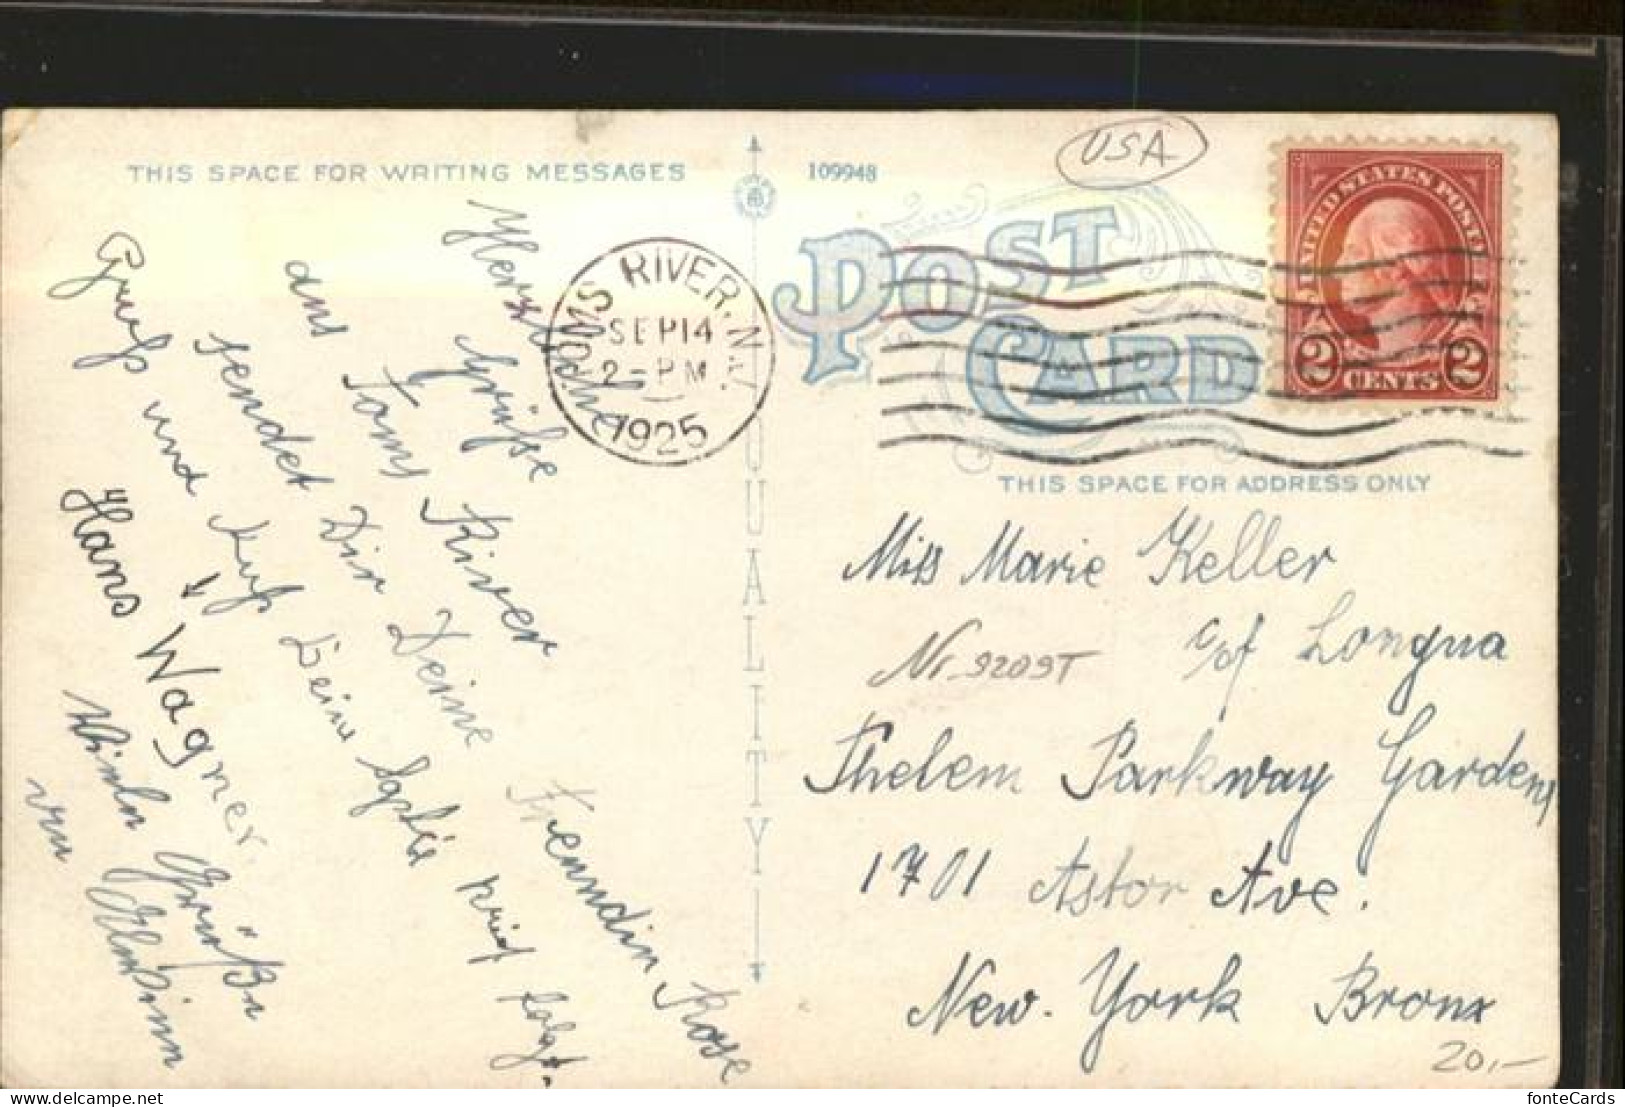 THIS SPACE FOR WRITING MESSAGES
Herzliche
Grüsse
aus Toms River
sendet Dir Deine Freundin Rose
Gruß und Kuß Deine
Brief folgt.
Hans Wagner.
Grüße
von
TOMS RIVER, N.J.
SEP 14
2 - PM
1925
QUALITY
109948
USA
POST CARD
UNITED STATES POSTAGE
2 CENTS 2
THIS SPACE FOR ADDRESS ONLY
Miss Marie Keller
c/of Longua
Nr. 9209T
Thelem Parkway Gardens
1701 Astor Ave.
New-York Bronx
20,-
fonteCards